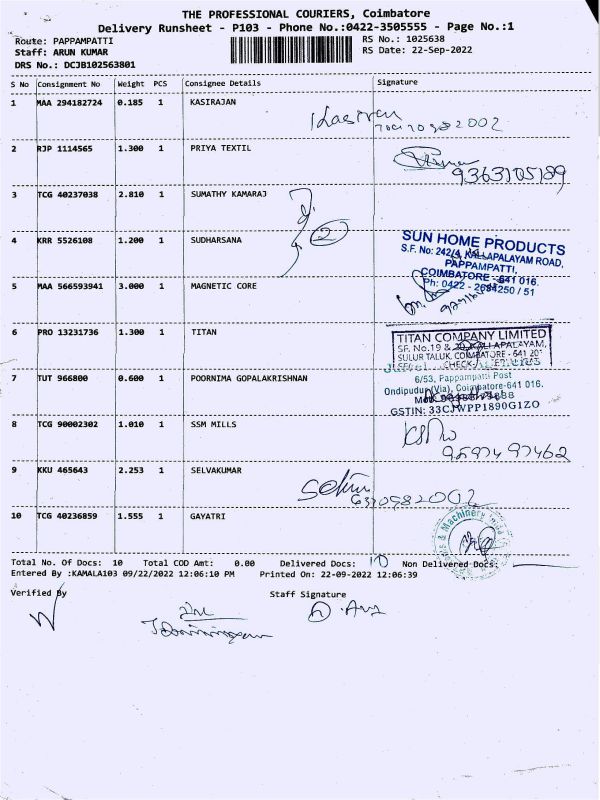 THE PROFESSIONAL COURIERS, Coimbatore
Delivery Runsheet - P103 - Phone No.:0422-3505555 - Page No.:1
Route: PAPPAMPATTI RS No.: 1025638
Staff: ARUN KUMAR RS Date: 22-Sep-2022
DRS No.: DCJB102563801
S No Consignment No Weight PCS Consignee Details Signature
1 MAA 294182724 0.185 1 KASIRAJAN
2 RJP 1114565 1.300 1 PRIYA TEXTIL
9363105189
3 TCG 40237038 2.810 1 SUMATHY KAMARAJ
2
4 KRR 5526108 1.200 1 SUDHARSANA
SUN HOME PRODUCTS
S.F. No: 242/4, KALLAPALAYAM ROAD,
PAPPAMPATTI,
COIMBATORE - 641 016.
5 MAA 566593941 3.000 1 MAGNETIC CORE
Ph: 0422 - 2684250 / 51
6 PRO 13231736 1.300 1 TITAN
TITAN COMPANY LIMITED
SF. No.19 & KALLAPALAYAM,
SULUR TALUK, COIMBATORE - 641 201
7 TUT 966800 0.600 1 POORNIMA GOPALAKRISHNAN
6/53, Pappampatti Post
Ondipudur (Via), Coimbatore-641 016.
GSTIN: 33CJWPP1890G1ZO
8 TCG 90002302 1.010 1 SSM MILLS
9597497462
9 KKU 465643 2.253 1 SELVAKUMAR
10 TCG 40236859 1.555 1 GAYATRI
Total No. Of Docs: 10 Total COD Amt: 0.00 Delivered Docs: 10 Non Delivered Docs:
Entered By :KAMALA103 09/22/2022 12:06:10 PM Printed On: 22-09-2022 12:06:39
Verified By Staff Signature